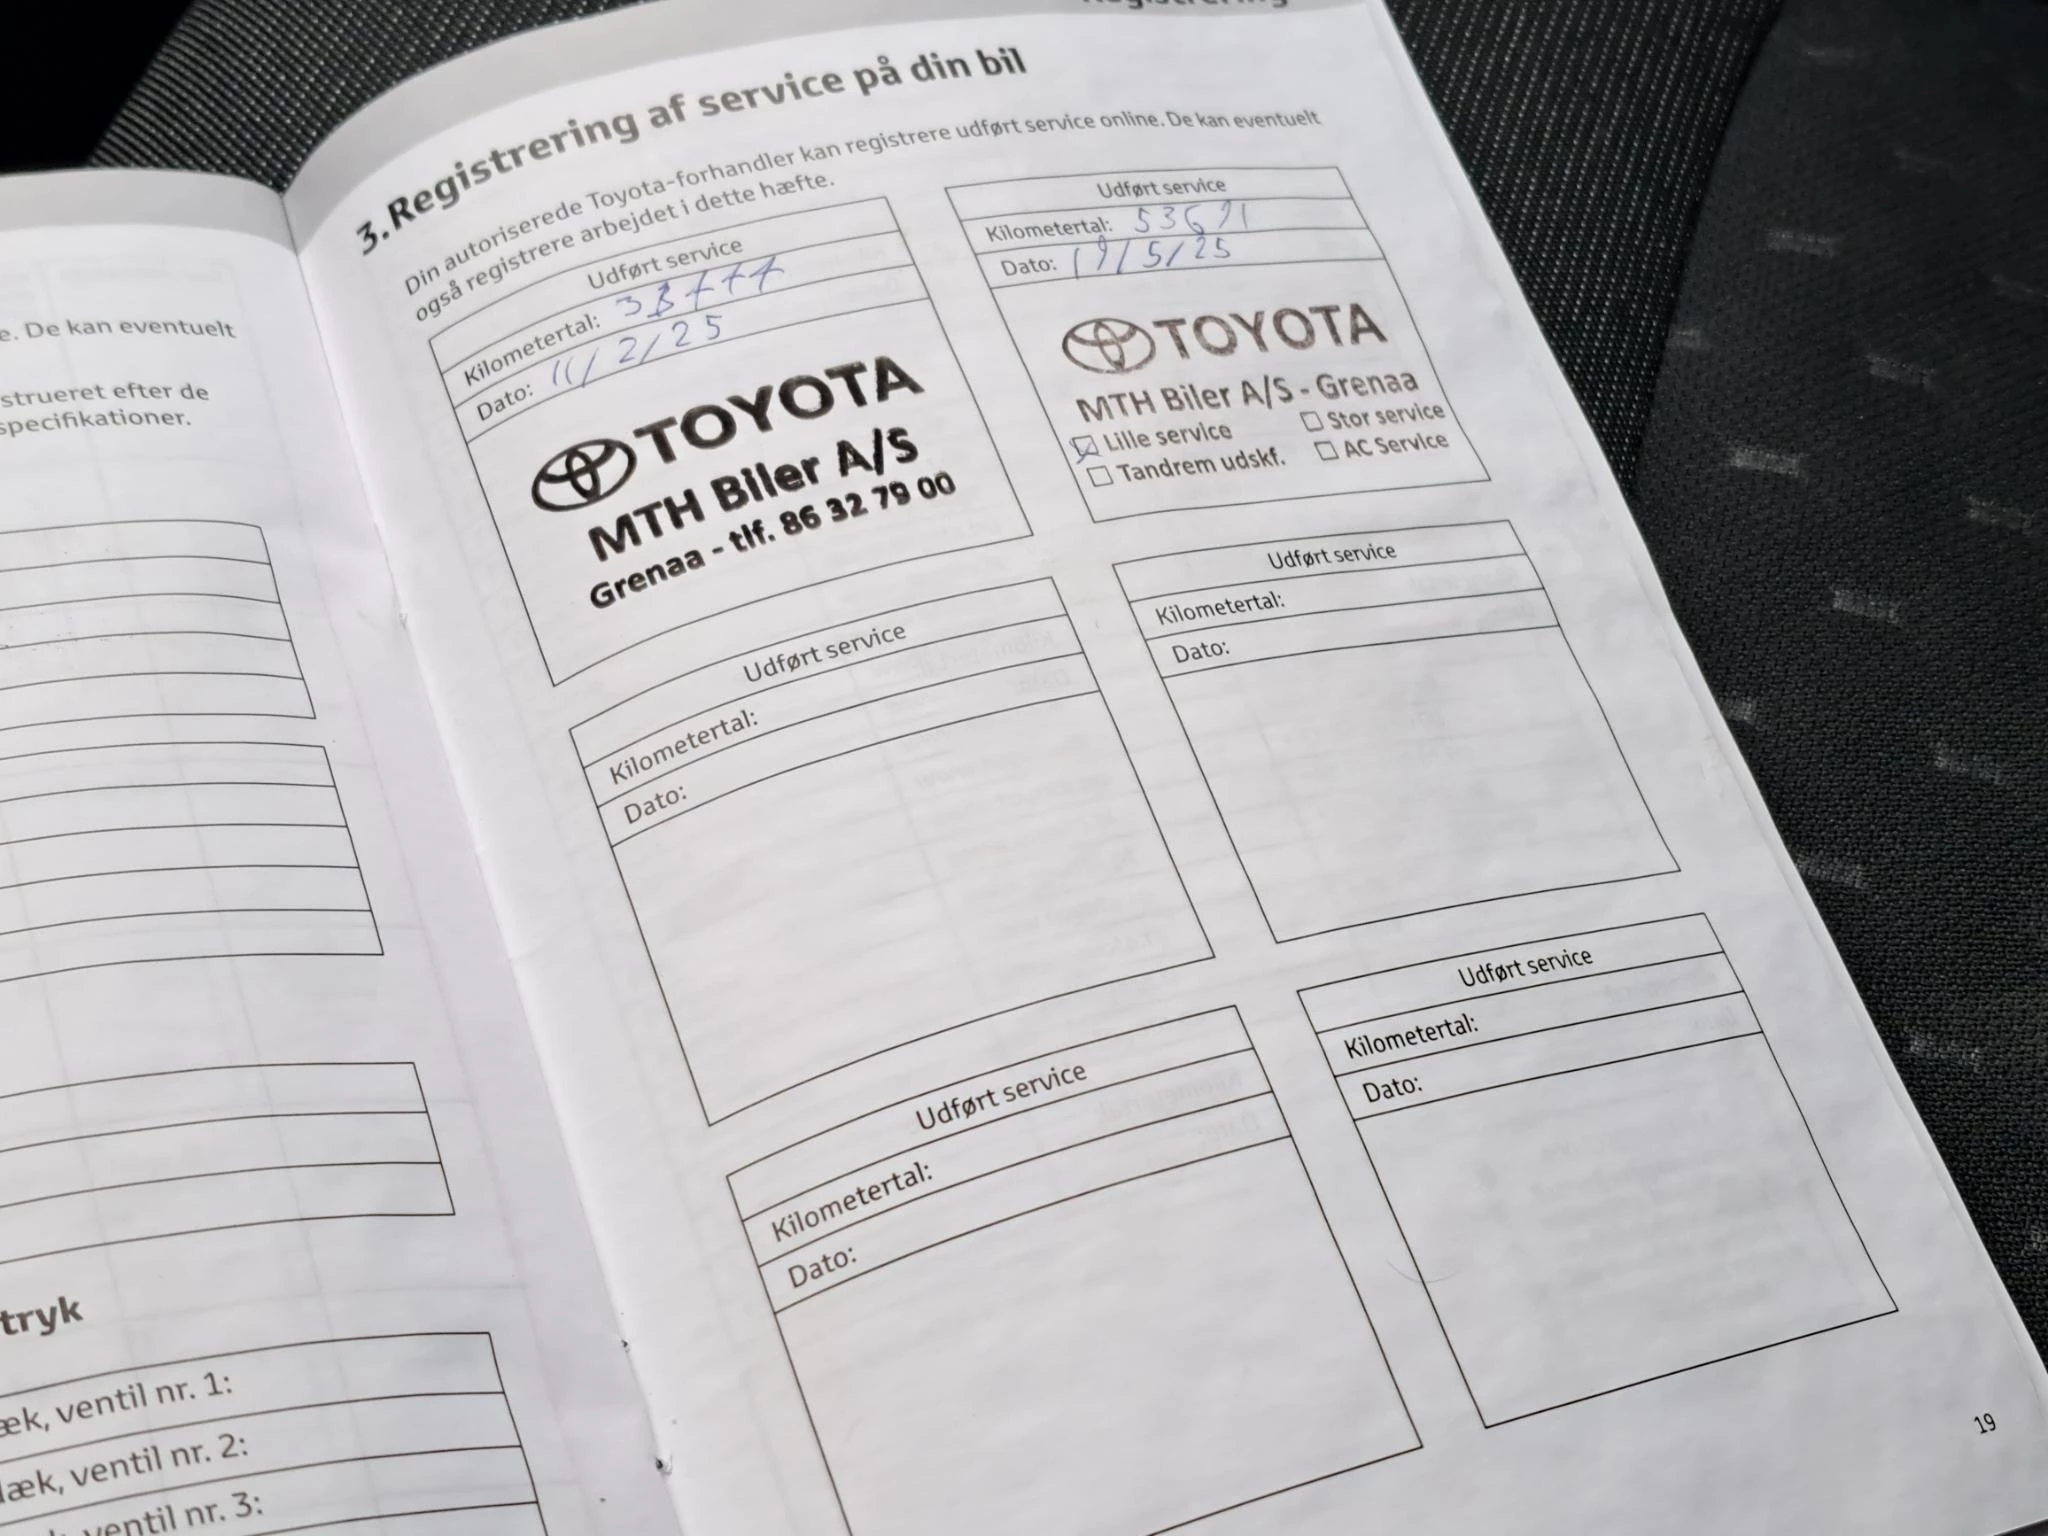 e. De kan eventuelt
strueret efter de
specifikationer.
tryk
æk, ventil nr. 1:
læk, ventil nr. 2:
ventil nr. 3:
Registrering
3. Registrering af service på din bil
Din autoriserede Toyota-forhandler kan registrere udført service online. De kan eventuelt
også registrere arbejdet i dette hæfte.
Udført service
Kilometertal:
Dato: 11/2/25
TOYOTA
MTH Biler A/S
Grenaa - tlf. 86 32 79 00
Udført service
Kilometertal: 53671
Dato: 19/5/25
TOYOTA
MTH Biler A/S - Grenaa
Lille service
Stor service
Tandrem udskf.
AC Service
Udført service
Kilometertal:
Dato:
Udført service
Kilometertal:
Dato:
Udført service
Kilometertal:
Dato:
Udført service
Kilometertal:
Dato:
19